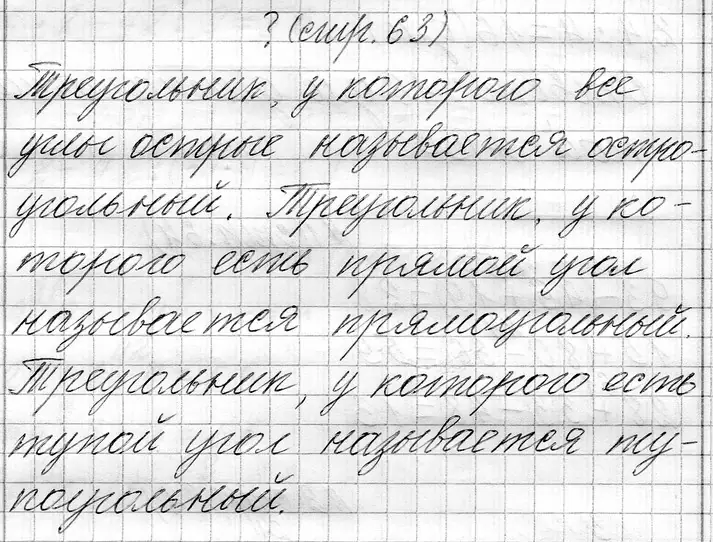 ? (стр. 63)
Треугольник, у которого все
углы острые называется остро-
угольный. Треугольник, у ко-
торого есть прямой угол
называется прямоугольный.
Треугольник, у которого есть
тупой угол называется ту-
поугольный.